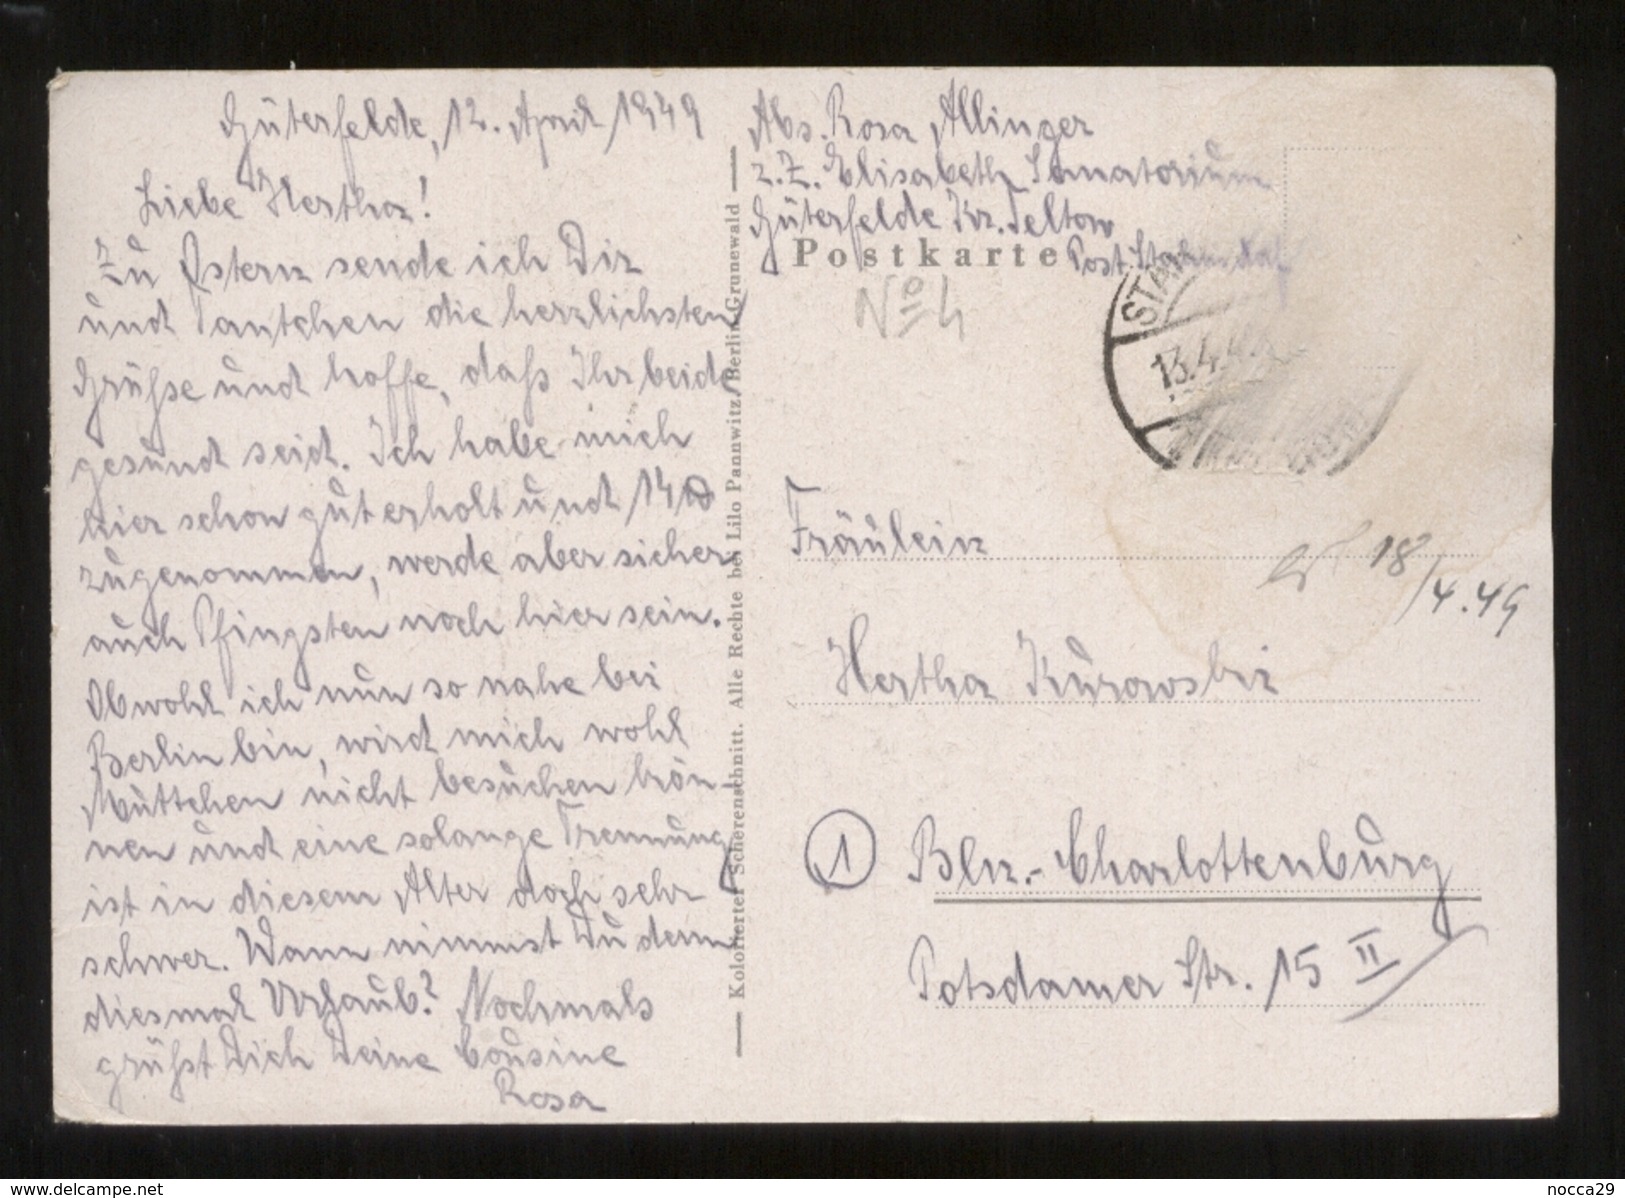 Güterfelde, 12. April 1949
Liebe Hertha!
Zu Ostern sende ich Dir
und Tantchen die herzlichsten
Grüße und hoffe, daß Ihr beide
gesund seid. Ich habe mich
hier schon gut erholt und 14 ℔
zugenommen, werde aber sicher
auch Pfingsten noch hier sein.
Obwohl ich nun so nahe bei
Berlin bin, wird mich wohl
Muttchen nicht besuchen kön-
nen und eine solange Trennung
ist in diesem Alter doch sehr
schwer. Wann nimmst Du denn
diesmal Urlaub? Nochmals
grüßt Dich Deine Cousine
Rosa
Kolorierter Scherenschnitt. Alle Rechte bei Lilo Pannwitz, Berlin-Grunewald
Abs. Rosa Allinger
z. Z. Elisabeth Sanatorium
Güterfelde Kr. Teltow
Post Stahnsdorf
Postkarte
No 4
STAH
13.4.4
Fräulein
18/4.49
Hertha Kurowski
1 Bln.-Charlottenburg
Potsdamer Str. 15 II
www.delcampe.net
nocca29